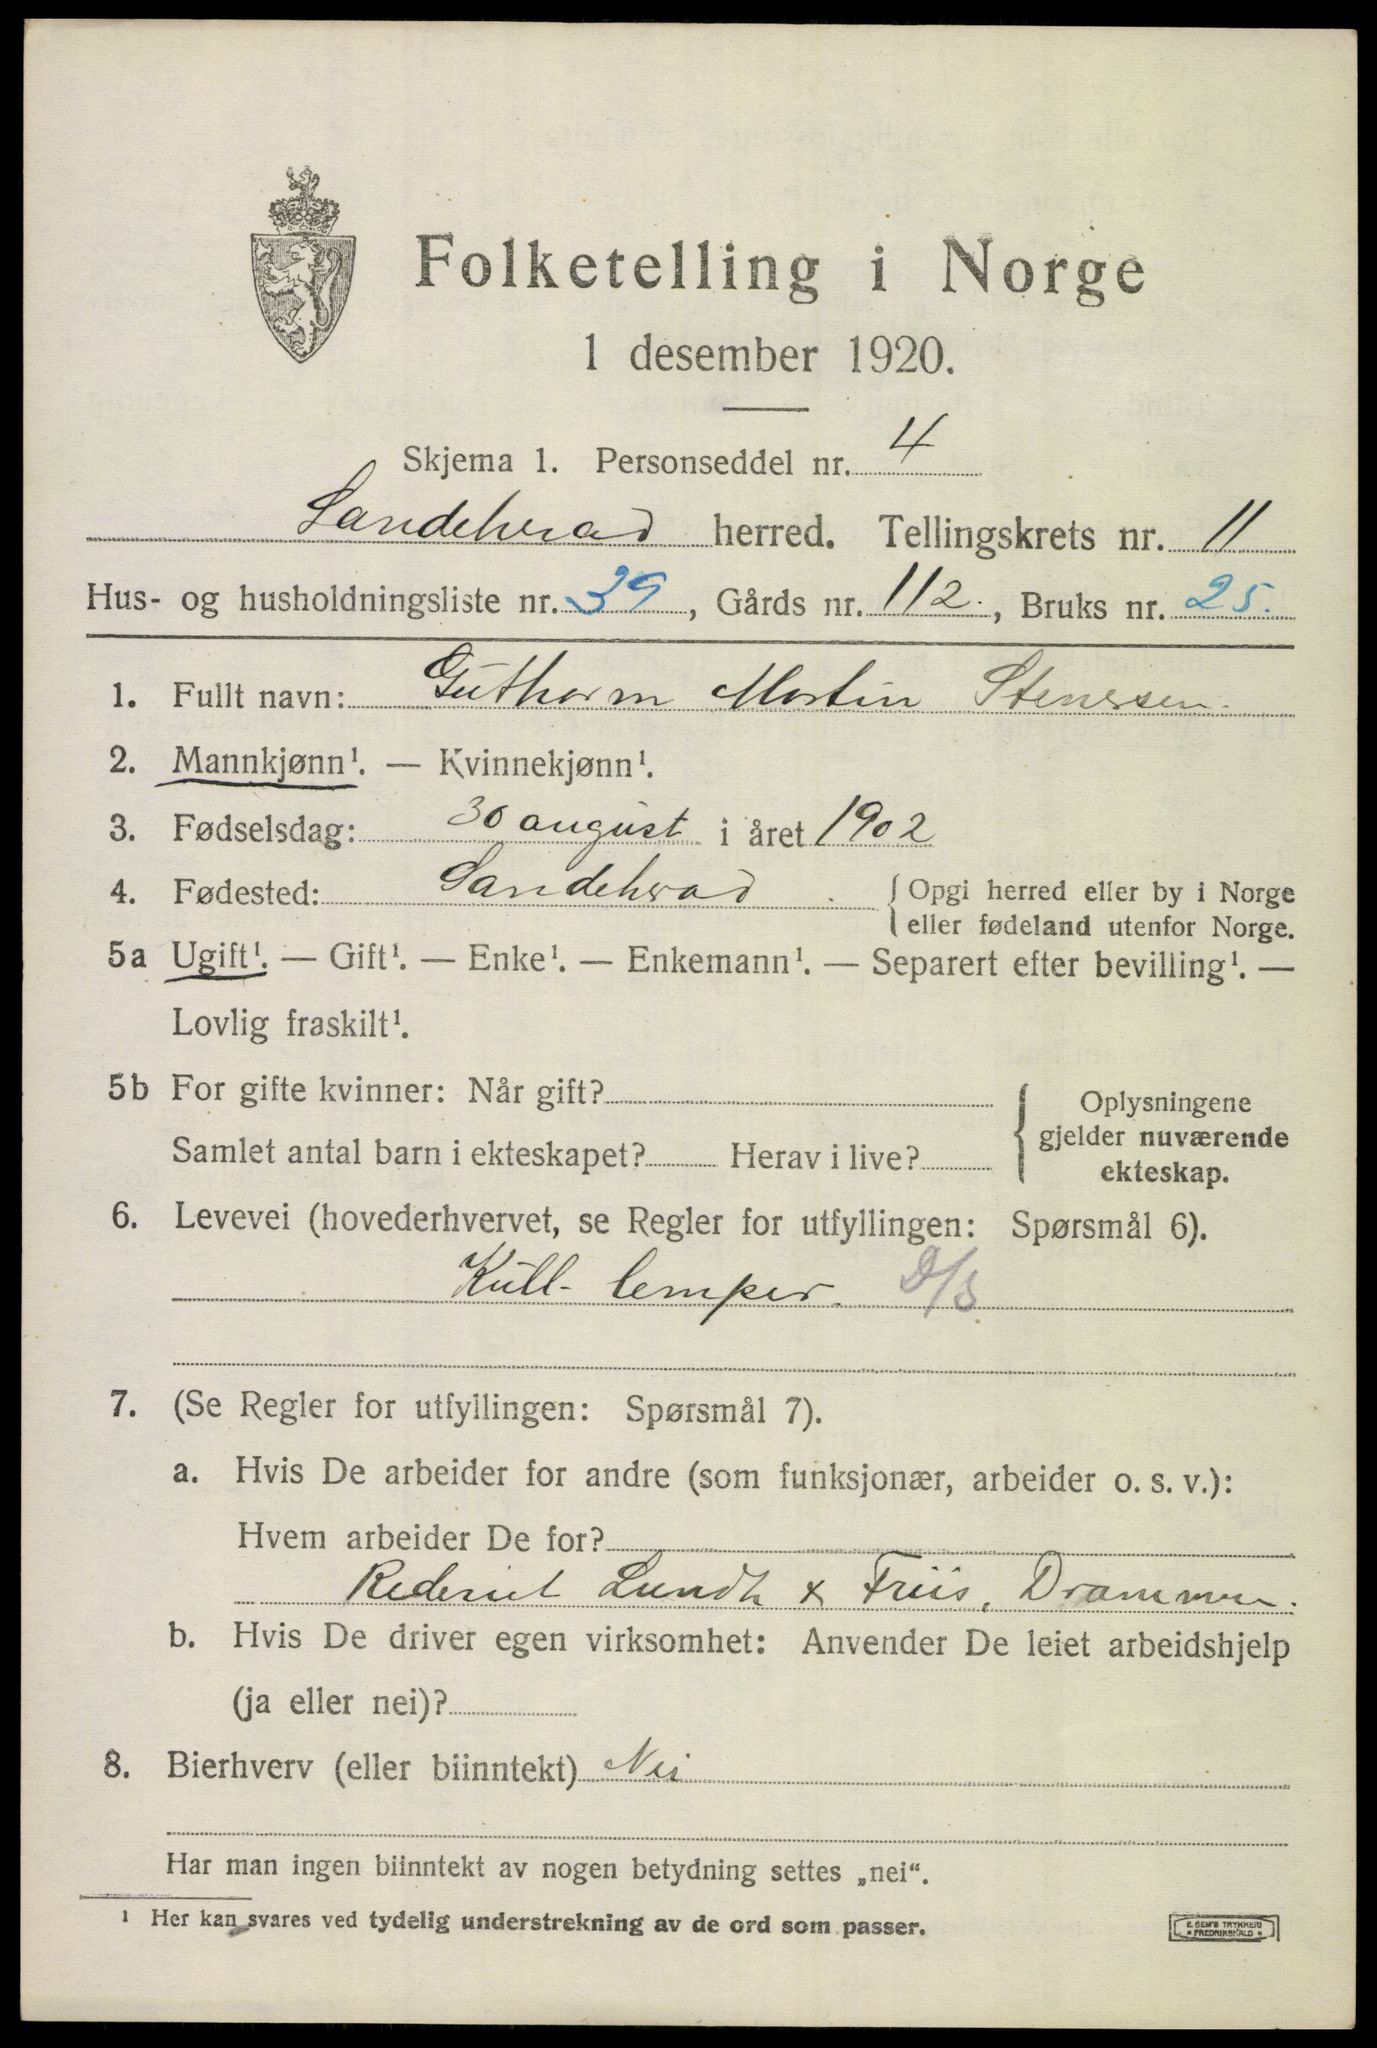 Folketelling i Norge
1 desember 1920.
Skjema 1. Personseddel nr. 4
Sandeherad herred. Tellingskrets nr. 11
Hus- og husholdningsliste nr. 39, Gårds nr. 112., Bruks nr. 25.
1. Fullt navn: Guthorm Martin Stenersen.
2. Mannkjønn¹. — Kvinnekjønn¹.
3. Fødselsdag: 30 august i året 1902
4. Fødested: Sandeherad. { Opgi herred eller by i Norge
eller fødeland utenfor Norge.
5a Ugift¹. — Gift¹. — Enke¹. — Enkemann¹. — Separert efter bevilling¹. —
Lovlig fraskilt¹.
5b For gifte kvinner: Når gift?
Samlet antal barn i ekteskapet? Herav i live?
Oplysningene
gjelder nuværende
ekteskap.
6. Levevei (hovederhvervet, se Regler for utfyllingen: Spørsmål 6).
Kull-lemper. D/S
7. (Se Regler for utfyllingen: Spørsmål 7).
a. Hvis De arbeider for andre (som funksjonær, arbeider o. s. v.):
Hvem arbeider De for?
Rederiet Lundh & Friis, Drammen.
b. Hvis De driver egen virksomhet: Anvender De leiet arbeidshjelp
(ja eller nei)?
8. Bierhverv (eller biinntekt) Nei
Har man ingen biinntekt av nogen betydning settes „nei“.
¹ Her kan svares ved tydelig understrekning av de ord som passer.
E. SEM'S TRYKKERI
FREDRIKSHALD